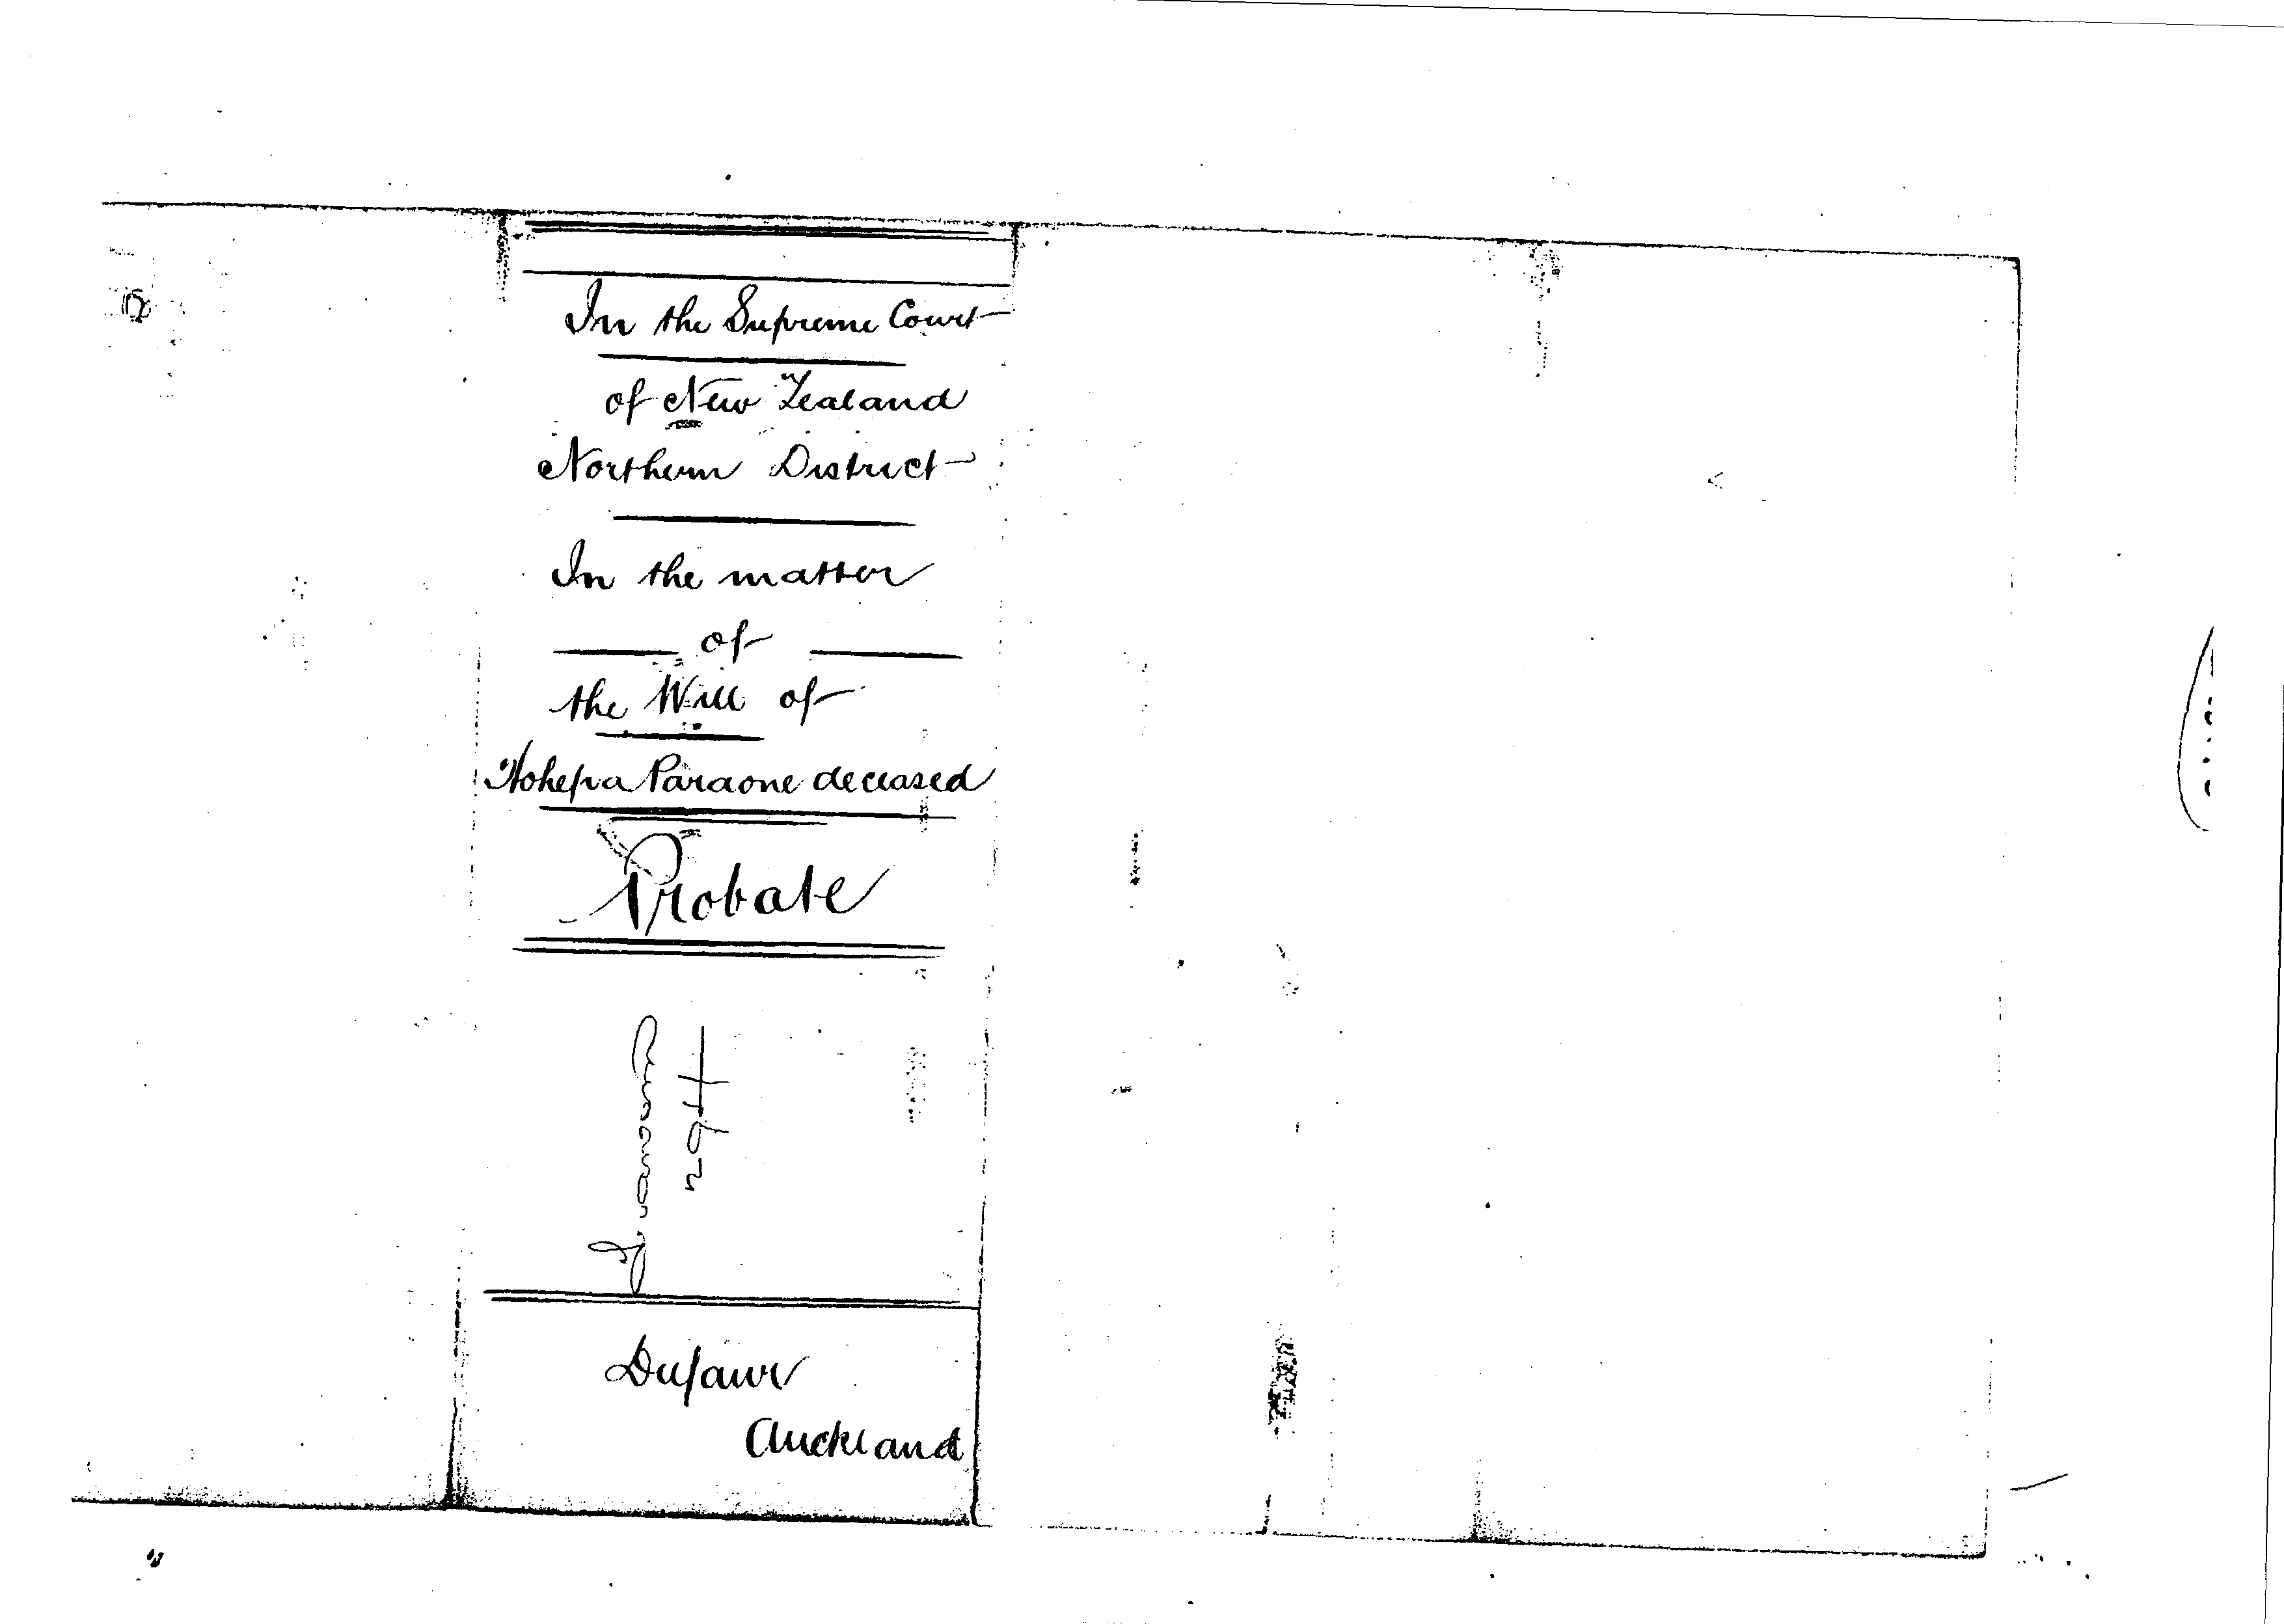 In the Supreme Court
of New Zealand
Northern District
In the matter
of
the Will of
Hohepa Paraone deceased
Probate
Dufaur
Auckland